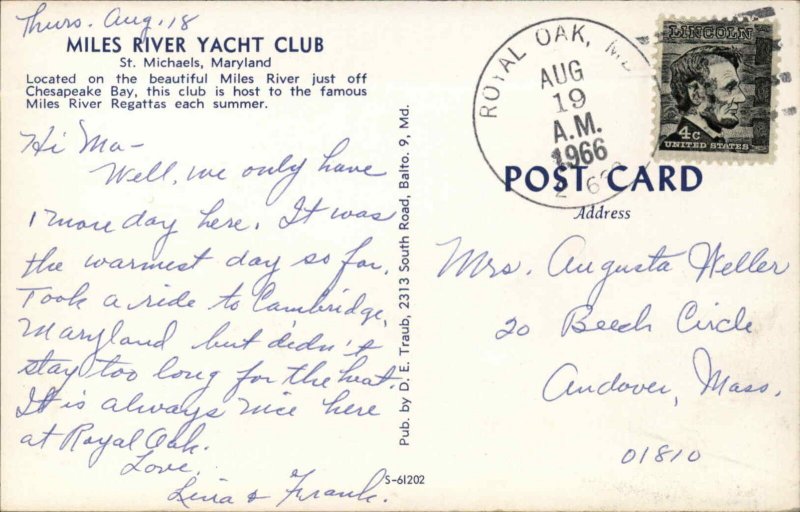 Thurs. Aug. 18
MILES RIVER YACHT CLUB
St. Michaels, Maryland
Located on the beautiful Miles River just off
Chesapeake Bay, this club is host to the famous
Miles River Regattas each summer.
Hi Ma-
Well, we only have
1 more day here. It was
the warmest day so far.
Took a ride to Cambridge,
Maryland but didn't
stay too long for the heat.
It is always nice here
at Royal Oak.
Love,
Lina & Frank.
Pub. by D. E. Traub, 2313 South Road, Balto. 9, Md.
S-61202
ROYAL OAK,
AUG
19
A.M.
1966
LINCOLN
4c
UNITED STATES
POST CARD
Address
Mrs. Augusta Weller
20 Beech Circle
Andover, Mass.
01810